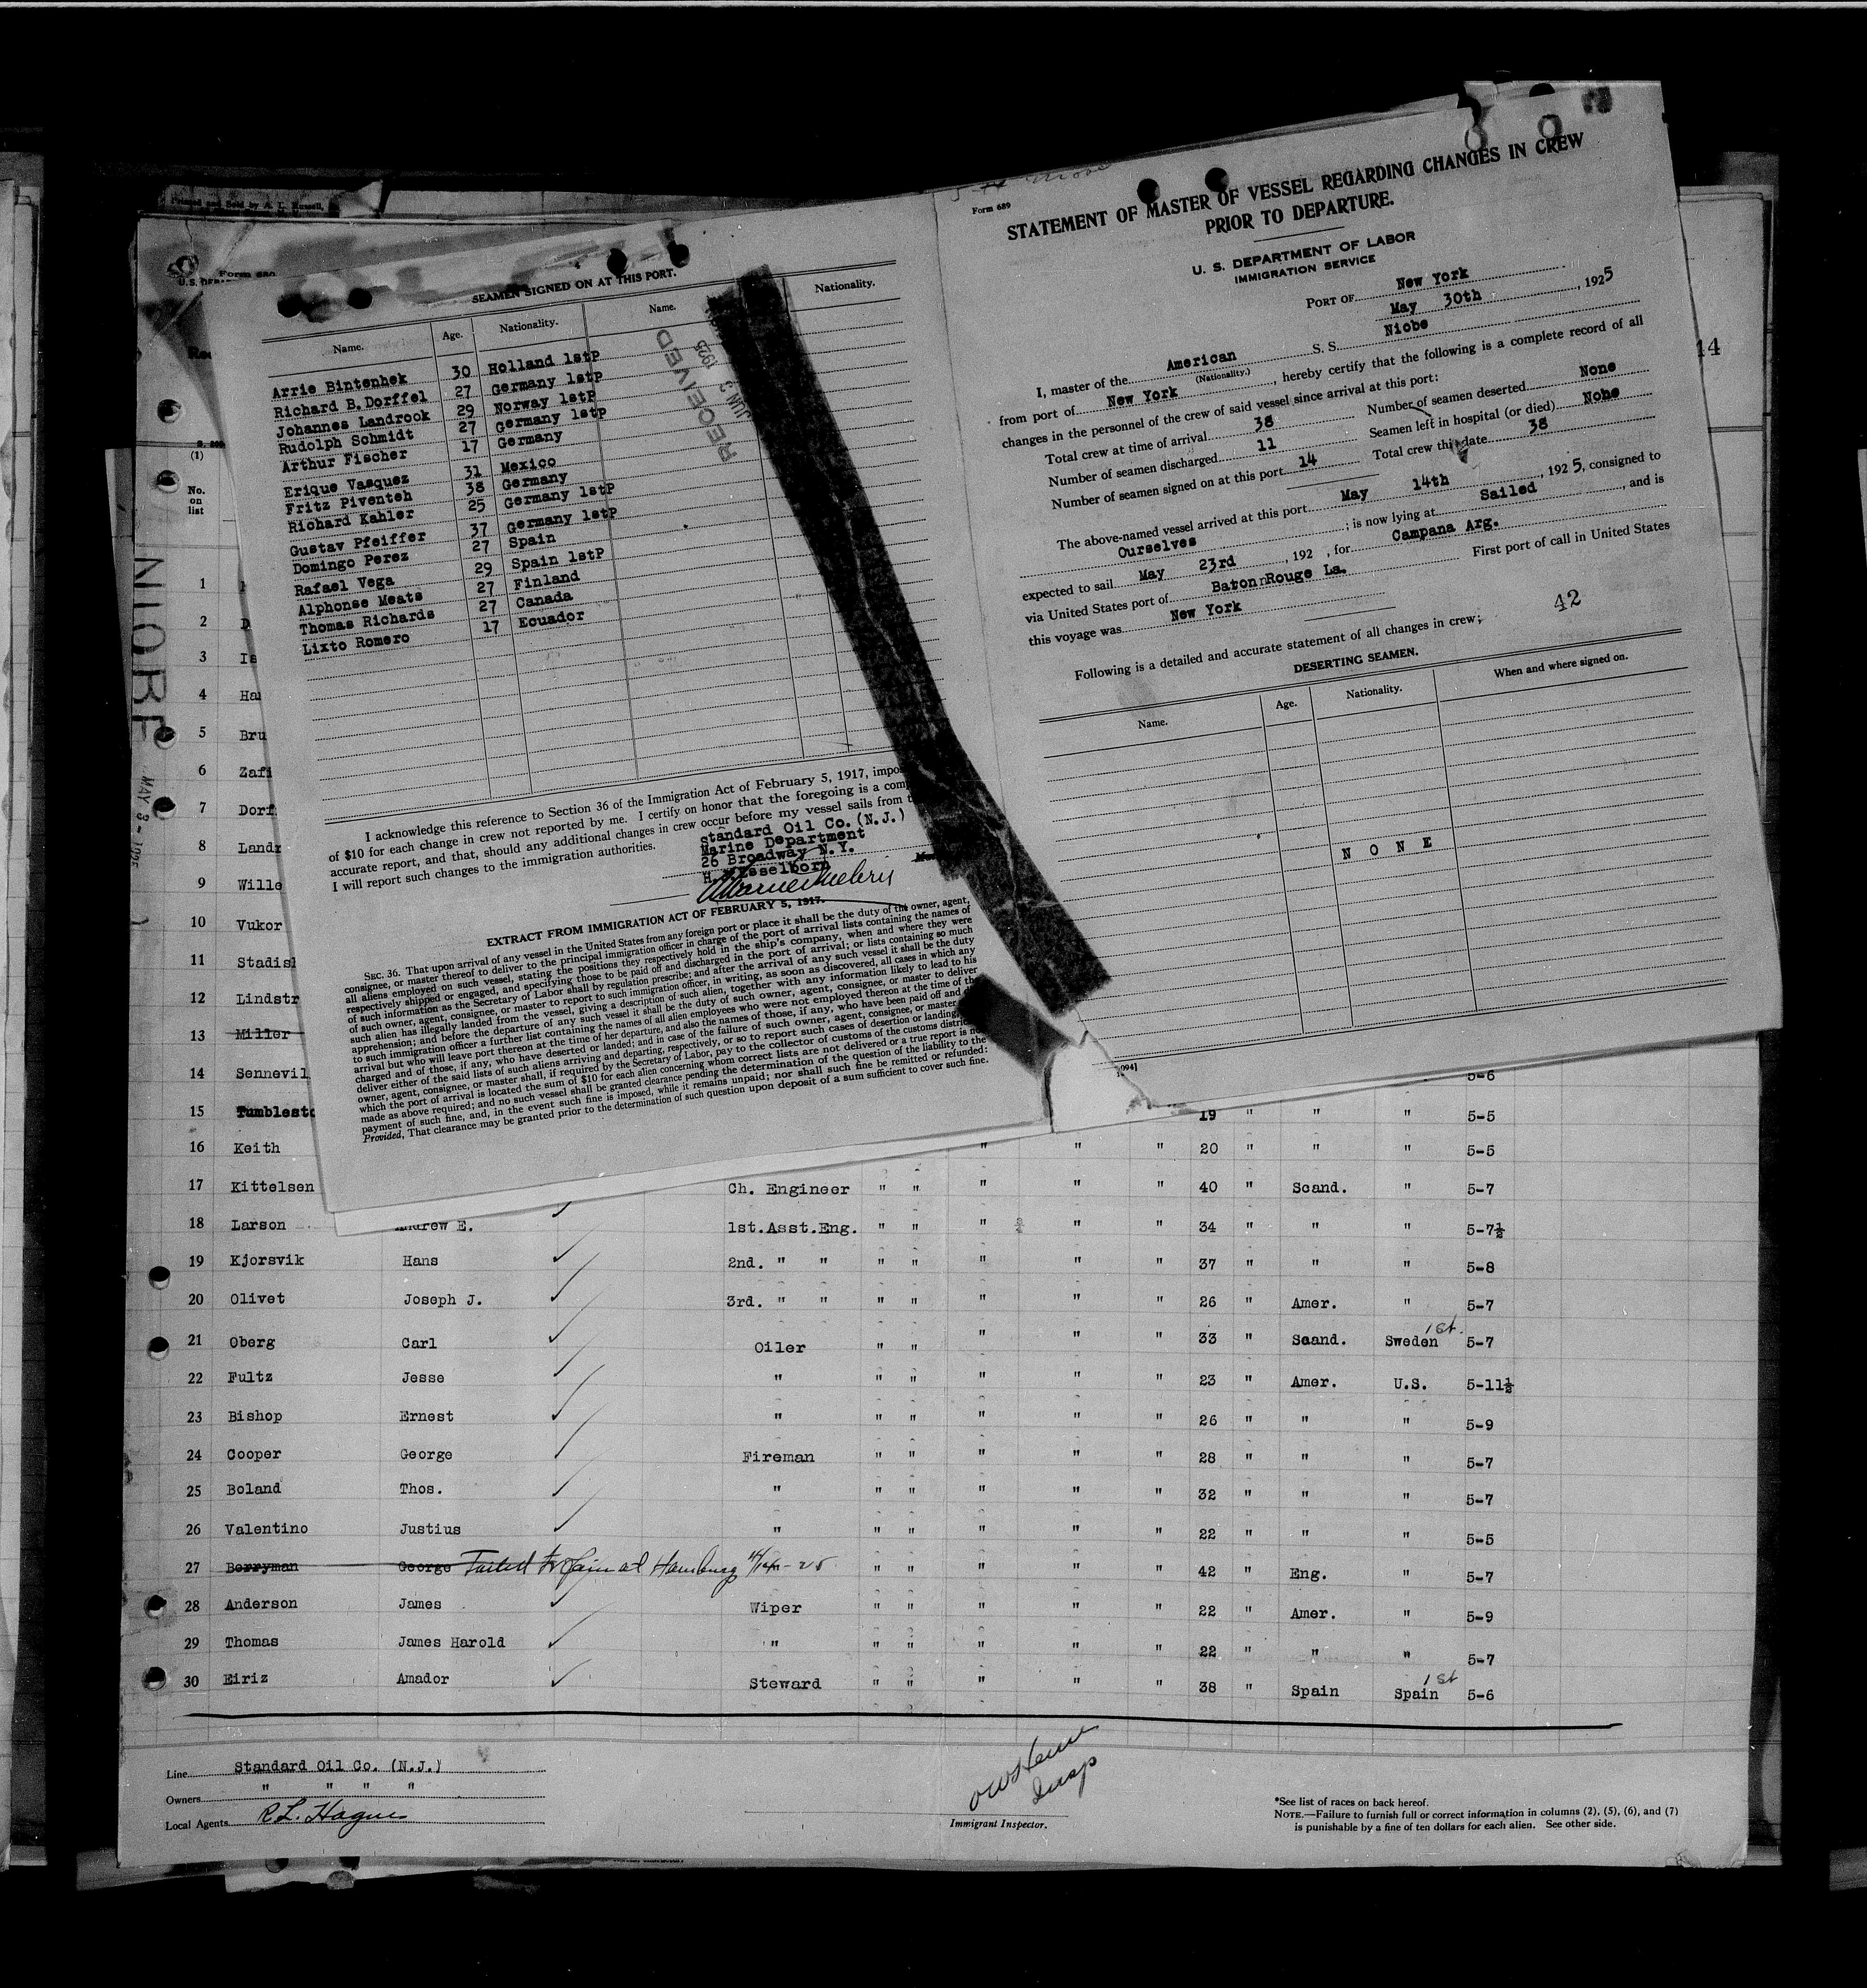 Printed and Sold by A. L. Russell,
Form 680
SEAMEN SIGNED ON AT THIS PORT.
Name. Age. Nationality. Name. Nationality.
Arrie Bintenhek 30 Holland 1stP
Richard B. Dorffel 27 Germany 1stP
Johannes Landrook 29 Norway 1stP
Rudolph Schmidt 27 Germany 1stP
Arthur Fischer 17 Germany
Erique Vasquez 31 Mexico
Fritz Piventeh 38 Germany
Richard Kahler 25 Germany 1stP
Gustav Pfeiffer 37 Germany 1stP
Domingo Perez 27 Spain
Rafael Vega 29 Spain 1stP
Alphonse Meats 27 Finland
Thomas Richards 27 Canada
Lixto Romero 17 Ecuador
RECEIVED
JUN 3 1925
I acknowledge this reference to Section 36 of the Immigration Act of February 5, 1917, impo
of $10 for each change in crew not reported by me. I certify on honor that the foregoing is a comp
accurate report, and that, should any additional changes in crew occur before my vessel sails from t
I will report such changes to the immigration authorities.
Standard Oil Co. (N.J.)
Marine Department
26 Broadway N.Y.
EXTRACT FROM IMMIGRATION ACT OF FEBRUARY 5, 1917.
SEC. 36. That upon arrival of any vessel in the United States from any foreign port or place it shall be the duty of the owner, agent,
consignee, or master thereof to deliver to the principal immigration officer in charge of the port of arrival lists containing the names of
all aliens employed on such vessel, stating the positions they respectively hold in the ship's company, when and where they were
respectively shipped or engaged, and specifying those to be paid off and discharged in the port of arrival; or lists containing so much
of such information as the Secretary of Labor shall by regulation prescribe; and after the arrival of any such vessel it shall be the duty
of such owner, agent, consignee, or master to report to such immigration officer, in writing, as soon as discovered, all cases in which any
such alien has illegally landed from the vessel, giving a description of such alien, together with any information likely to lead to his
apprehension; and before the departure of any such vessel it shall be the duty of such owner, agent, consignee, or master to deliver
to such immigration officer a further list containing the names of all alien employees who were not employed thereon at the time of the
arrival but who will leave port thereon at the time of her departure, and also the names of those, if any, who have been paid off and
charged and of those, if any, who have deserted or landed; and in case of the failure of such owner, agent, consignee, or master
deliver either of the said lists of such aliens arriving and departing, respectively, or so to report such cases of desertion or landing,
owner, agent, consignee, or master shall, if required by the Secretary of Labor, pay to the collector of customs of the customs district
which the port of arrival is located the sum of $10 for each alien concerning whom correct lists are not delivered or a true report is
made as above required; and no such vessel shall be granted clearance pending the determination of the question of the liability to the
payment of such fine, and, in the event such fine is imposed, while it remains unpaid; nor shall such fine be remitted or refunded:
Provided, That clearance may be granted prior to the determination of such question upon deposit of a sum sufficient to cover such fine.
Form 689
STATEMENT OF MASTER OF VESSEL REGARDING CHANGES IN CREW
PRIOR TO DEPARTURE.
U. S. DEPARTMENT OF LABOR
IMMIGRATION SERVICE
PORT OF New York
May 30th, 1925
I, master of the American S. S. Niobe
(Nationality.)
from port of New York, hereby certify that the following is a complete record of all
changes in the personnel of the crew of said vessel since arrival at this port:
Total crew at time of arrival 38 Number of seamen deserted None
Number of seamen discharged 11 Seamen left in hospital (or died) Nohe
Number of seamen signed on at this port 14 Total crew this date 38
The above-named vessel arrived at this port May 14th, 1925, consigned to
Ourselves; is now lying at Sailed, and is
expected to sail May 23rd, 192 , for Campana Arg.
via United States port of Baton Rouge La. First port of call in United States
this voyage was New York
42
Following is a detailed and accurate statement of all changes in crew;
DESERTING SEAMEN.
Name. Age. Nationality. When and where signed on.
N O N E
14
NIOBE
(1)
No.
on
list
1
2 D
3 Is
4 Ha
5 Bru
6 Zafi
7 Dorf
8 Landr
9 Wille
10 Vukor
11 Stadisl
12 Lindstr
13 Miller
14 Sennevil 5-6
15 Tumblesto 19 " " " 5-5
16 Keith " " " 20 " " " 5-5
17 Kittelsen Ch. Engineer " " " " " 40 " Scand. " 5-7
18 Larson Andrew E. 1st.Asst.Eng. " " " " " 34 " " " 5-7½
19 Kjorsvik Hans 2nd. " " " " " " " 37 " " " 5-8
20 Olivet Joseph J. 3rd. " " " " " " " 26 " Amer. " 5-7
21 Oberg Carl Oiler " " " " " 33 " Scand. Sweden 1st. 5-7
22 Fultz Jesse " " " " " " 23 " Amer. U.S. 5-11½
23 Bishop Ernest " " " " " " 26 " " " 5-9
24 Cooper George Fireman " " " " " 28 " " " 5-7
25 Boland Thos. " " " " " " 32 " " " 5-7
26 Valentino Justius " " " " " " 22 " " " 5-5
27 Berryman George Failed to join at Hamburg " " " " " 42 " Eng. " 5-7
28 Anderson James Wiper " " " " " 22 " Amer. " 5-9
29 Thomas James Harold " " " " " " 22 " " " 5-7
30 Eiriz Amador Steward " " " " " 38 " Spain Spain 1st 5-6
Line Standard Oil Co. (N.J.)
Owners " " " "
Local Agents R.L. Hague
Insp
Immigrant Inspector.
*See list of races on back hereof.
NOTE.—Failure to furnish full or correct information in columns (2), (5), (6), and (7)
is punishable by a fine of ten dollars for each alien. See other side.